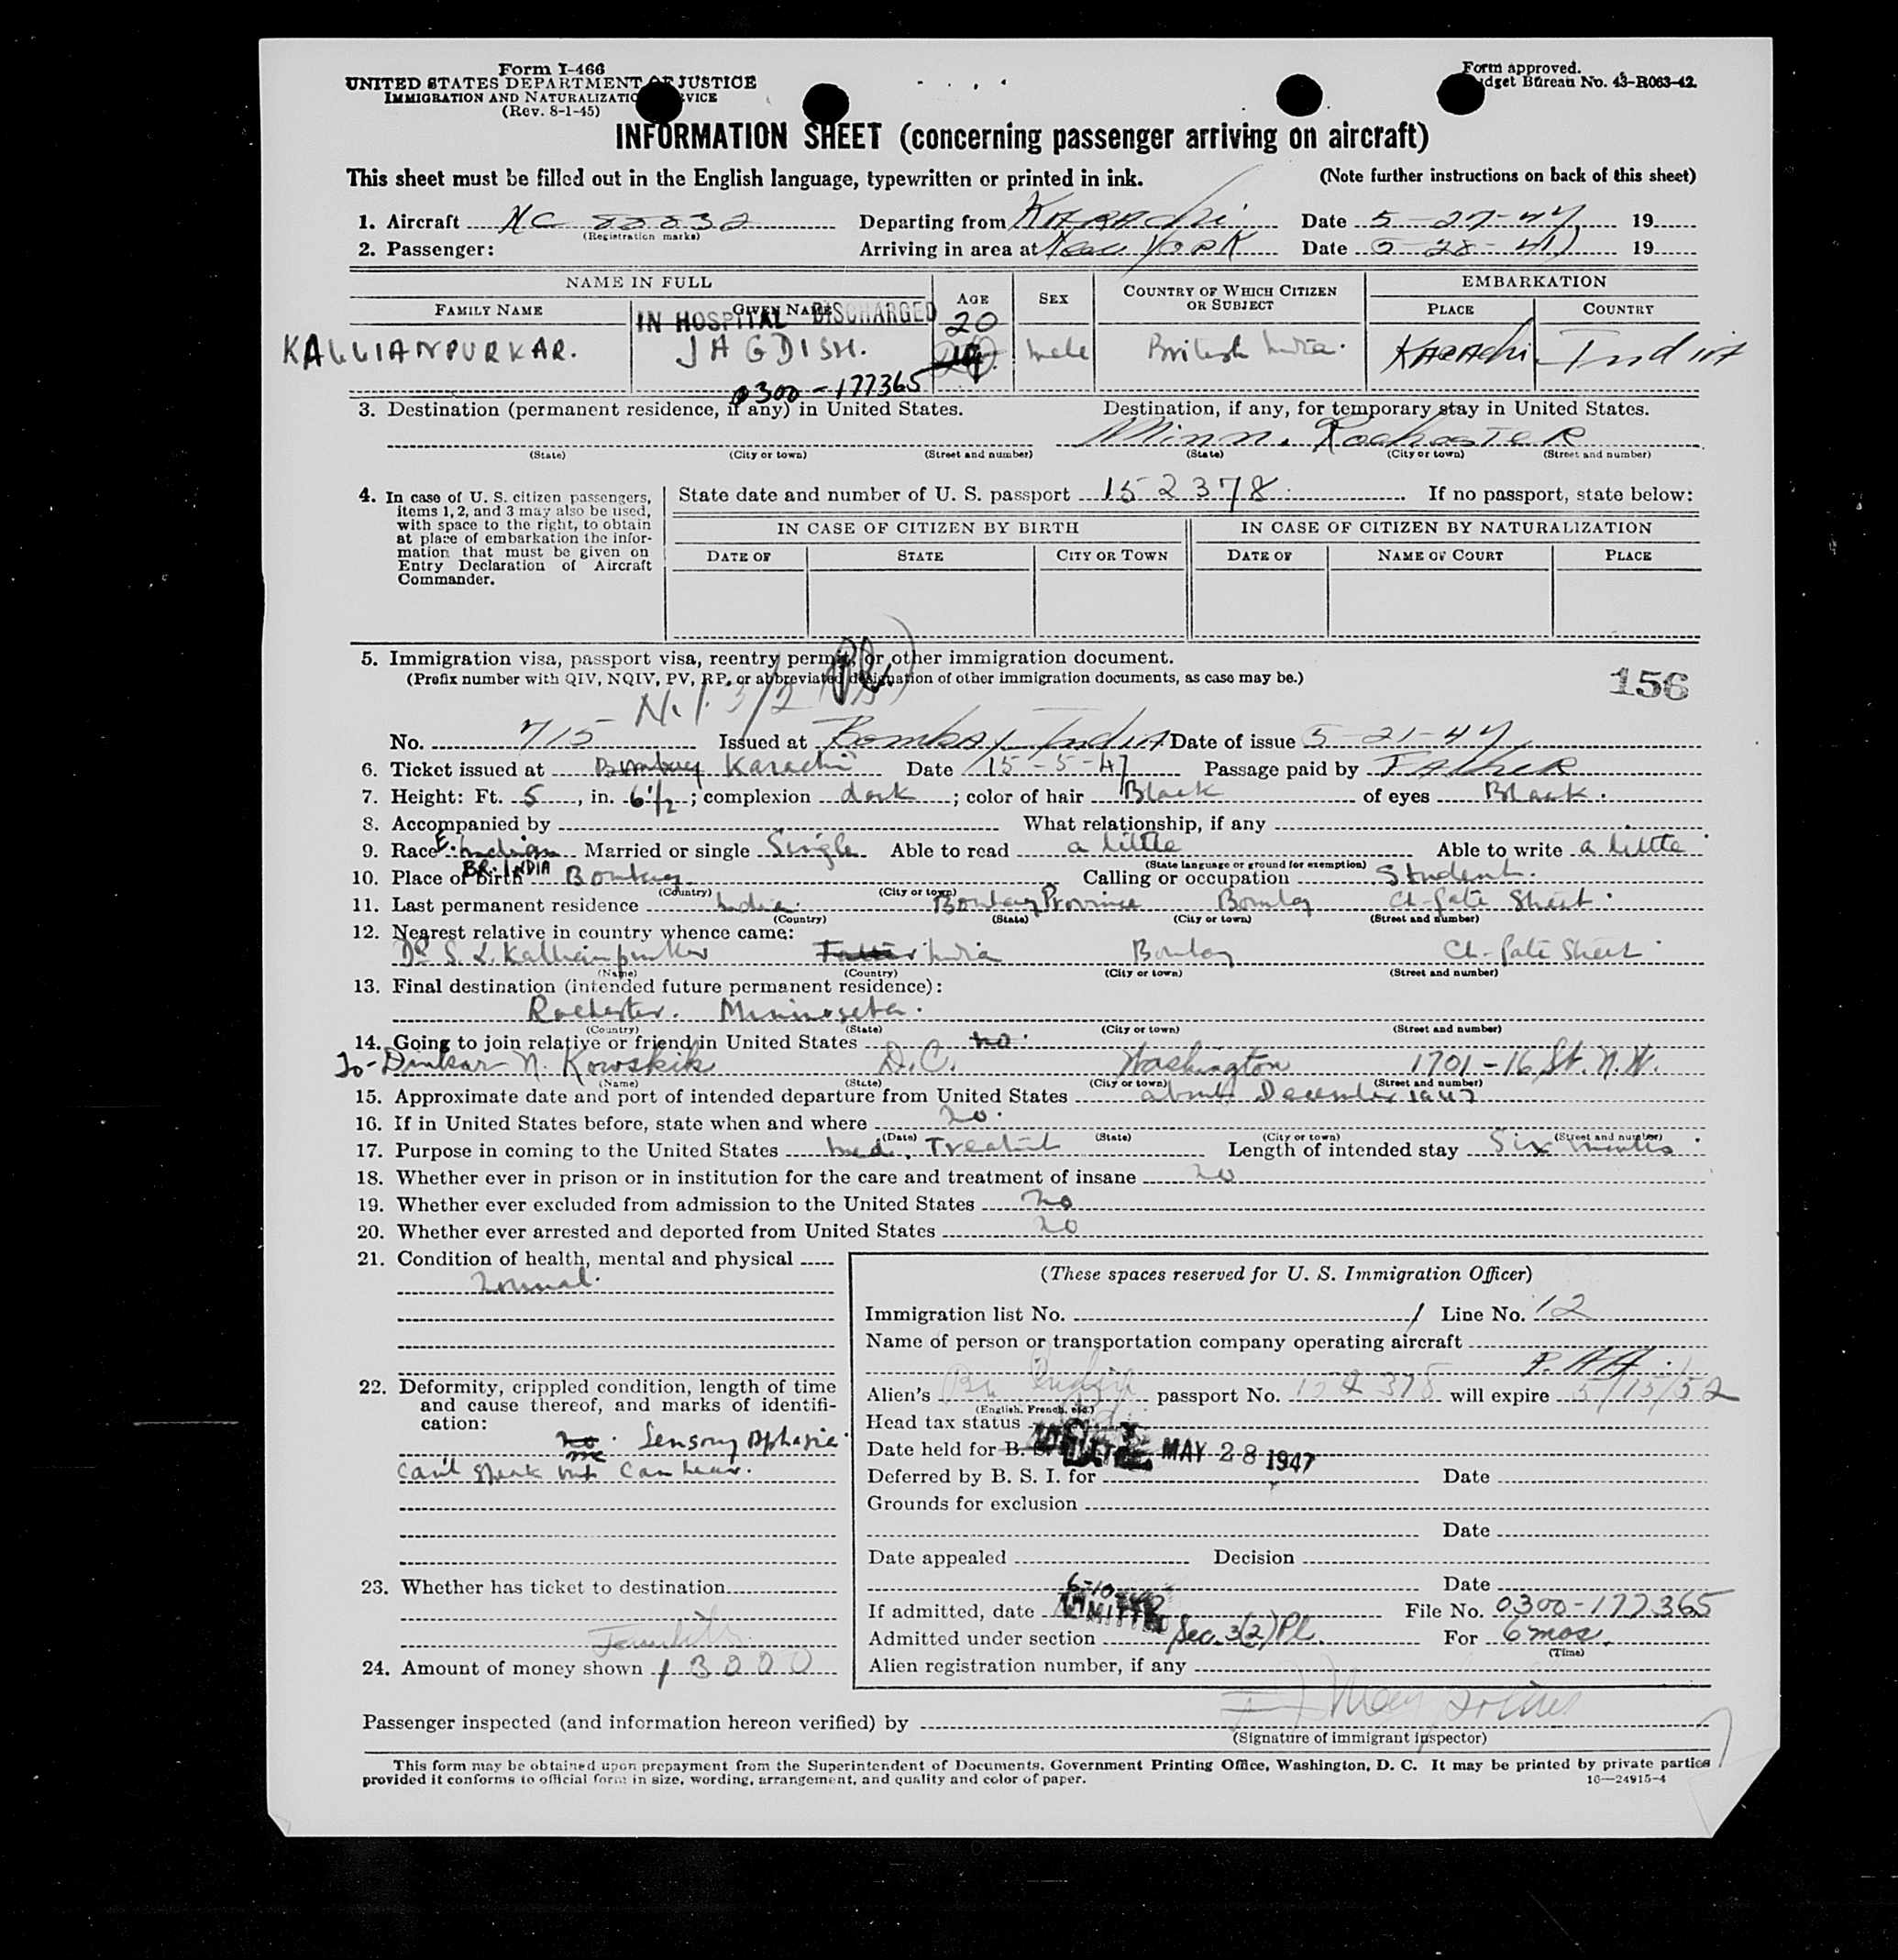 Form I-466
UNITED STATES DEPARTMENT OF JUSTICE
IMMIGRATION AND NATURALIZATION SERVICE
(Rev. 8-1-45)
Form approved.
Budget Bureau No. 43-R063-42.
INFORMATION SHEET (concerning passenger arriving on aircraft)
This sheet must be filled out in the English language, typewritten or printed in ink. (Note further instructions on back of this sheet)
1. Aircraft NC 88832 Departing from KARAchi Date 5-27-47 19
(Registration marks)
2. Passenger: Arriving in area at New York Date 5-28-47 19
NAME IN FULL AGE SEX COUNTRY OF WHICH CITIZEN OR SUBJECT EMBARKATION
FAMILY NAME GIVEN NAME PLACE COUNTRY
IN HOSPITAL DISCHARGED 20
KALLIANPURKAR. JAGDISH. 19 male British India. KARAchi India
0300-177365
3. Destination (permanent residence, if any) in United States. Destination, if any, for temporary stay in United States.
Minn. Rochester
(State) (City or town) (Street and number) (State) (City or town) (Street and number)
4. In case of U. S. citizen passengers, items 1, 2, and 3 may also be used, with space to the right, to obtain at place of embarkation the information that must be given on Entry Declaration of Aircraft Commander.
State date and number of U. S. passport 152378. If no passport, state below:
IN CASE OF CITIZEN BY BIRTH IN CASE OF CITIZEN BY NATURALIZATION
DATE OF STATE CITY OR TOWN DATE OF NAME OF COURT PLACE
5. Immigration visa, passport visa, reentry permit, or other immigration document.
(Prefix number with QIV, NQIV, PV, RP, or abbreviated designation of other immigration documents, as case may be.)
156
No. 715 Issued at Bombay India Date of issue 5-21-47
6. Ticket issued at Bombay Karachi Date 15-5-47 Passage paid by FATheR
7. Height: Ft. 5, in. 6 1/2; complexion dark; color of hair Black of eyes Black.
8. Accompanied by What relationship, if any
9. Race E. Indian Married or single Single Able to read a little Able to write a little
(State language or ground for exemption)
BR. INDIA
10. Place of birth Bombay Calling or occupation Student.
(Country) (City or town)
11. Last permanent residence India. Bombay Province Bombay Ch-gate Street.
(Country) (State) (City or town) (Street and number)
12. Nearest relative in country whence came:
Dr S. L. Kallianpurkar India Bombay Ch-gate Street.
(Name) (Country) (City or town) (Street and number)
13. Final destination (intended future permanent residence):
Rochester. Minnoseta.
(Country) (State) (City or town) (Street and number)
14. Going to join relative or friend in United States no.
To- Dinkar N. Kowskik D.C. Washington 1701-16 St. N.W.
(Name) (State) (City or town) (Street and number)
15. Approximate date and port of intended departure from United States about December 1947
16. If in United States before, state when and where no.
(Date) (State) (City or town) (Street and number)
17. Purpose in coming to the United States med. Treatmt Length of intended stay Six months.
18. Whether ever in prison or in institution for the care and treatment of insane no
19. Whether ever excluded from admission to the United States no
20. Whether ever arrested and deported from United States no
21. Condition of health, mental and physical
normal.
22. Deformity, crippled condition, length of time and cause thereof, and marks of identification:
no. Sensory Aphasia
can't speak but can hear.
23. Whether has ticket to destination
24. Amount of money shown 13000
(These spaces reserved for U. S. Immigration Officer)
Immigration list No. 1 Line No. 12
Name of person or transportation company operating aircraft
P.AA.
Alien's Br India passport No. 152378 will expire 5/15/52
(English, French, etc.)
Head tax status
Date held for B. S. I. MAY 28 1947
Deferred by B. S. I. for Date
Grounds for exclusion
Date
Date appealed Decision
Date
6-10-47
If admitted, date ADMITTED File No. 0300-177365
Admitted under section Sec. 3(2) Pl. For 6 mos.
(Time)
Alien registration number, if any
Passenger inspected (and information hereon verified) by
(Signature of immigrant inspector)
This form may be obtained upon prepayment from the Superintendent of Documents, Government Printing Office, Washington, D. C. It may be printed by private parties
provided it conforms to official form in size, wording, arrangement, and quality and color of paper. 16—24915-4